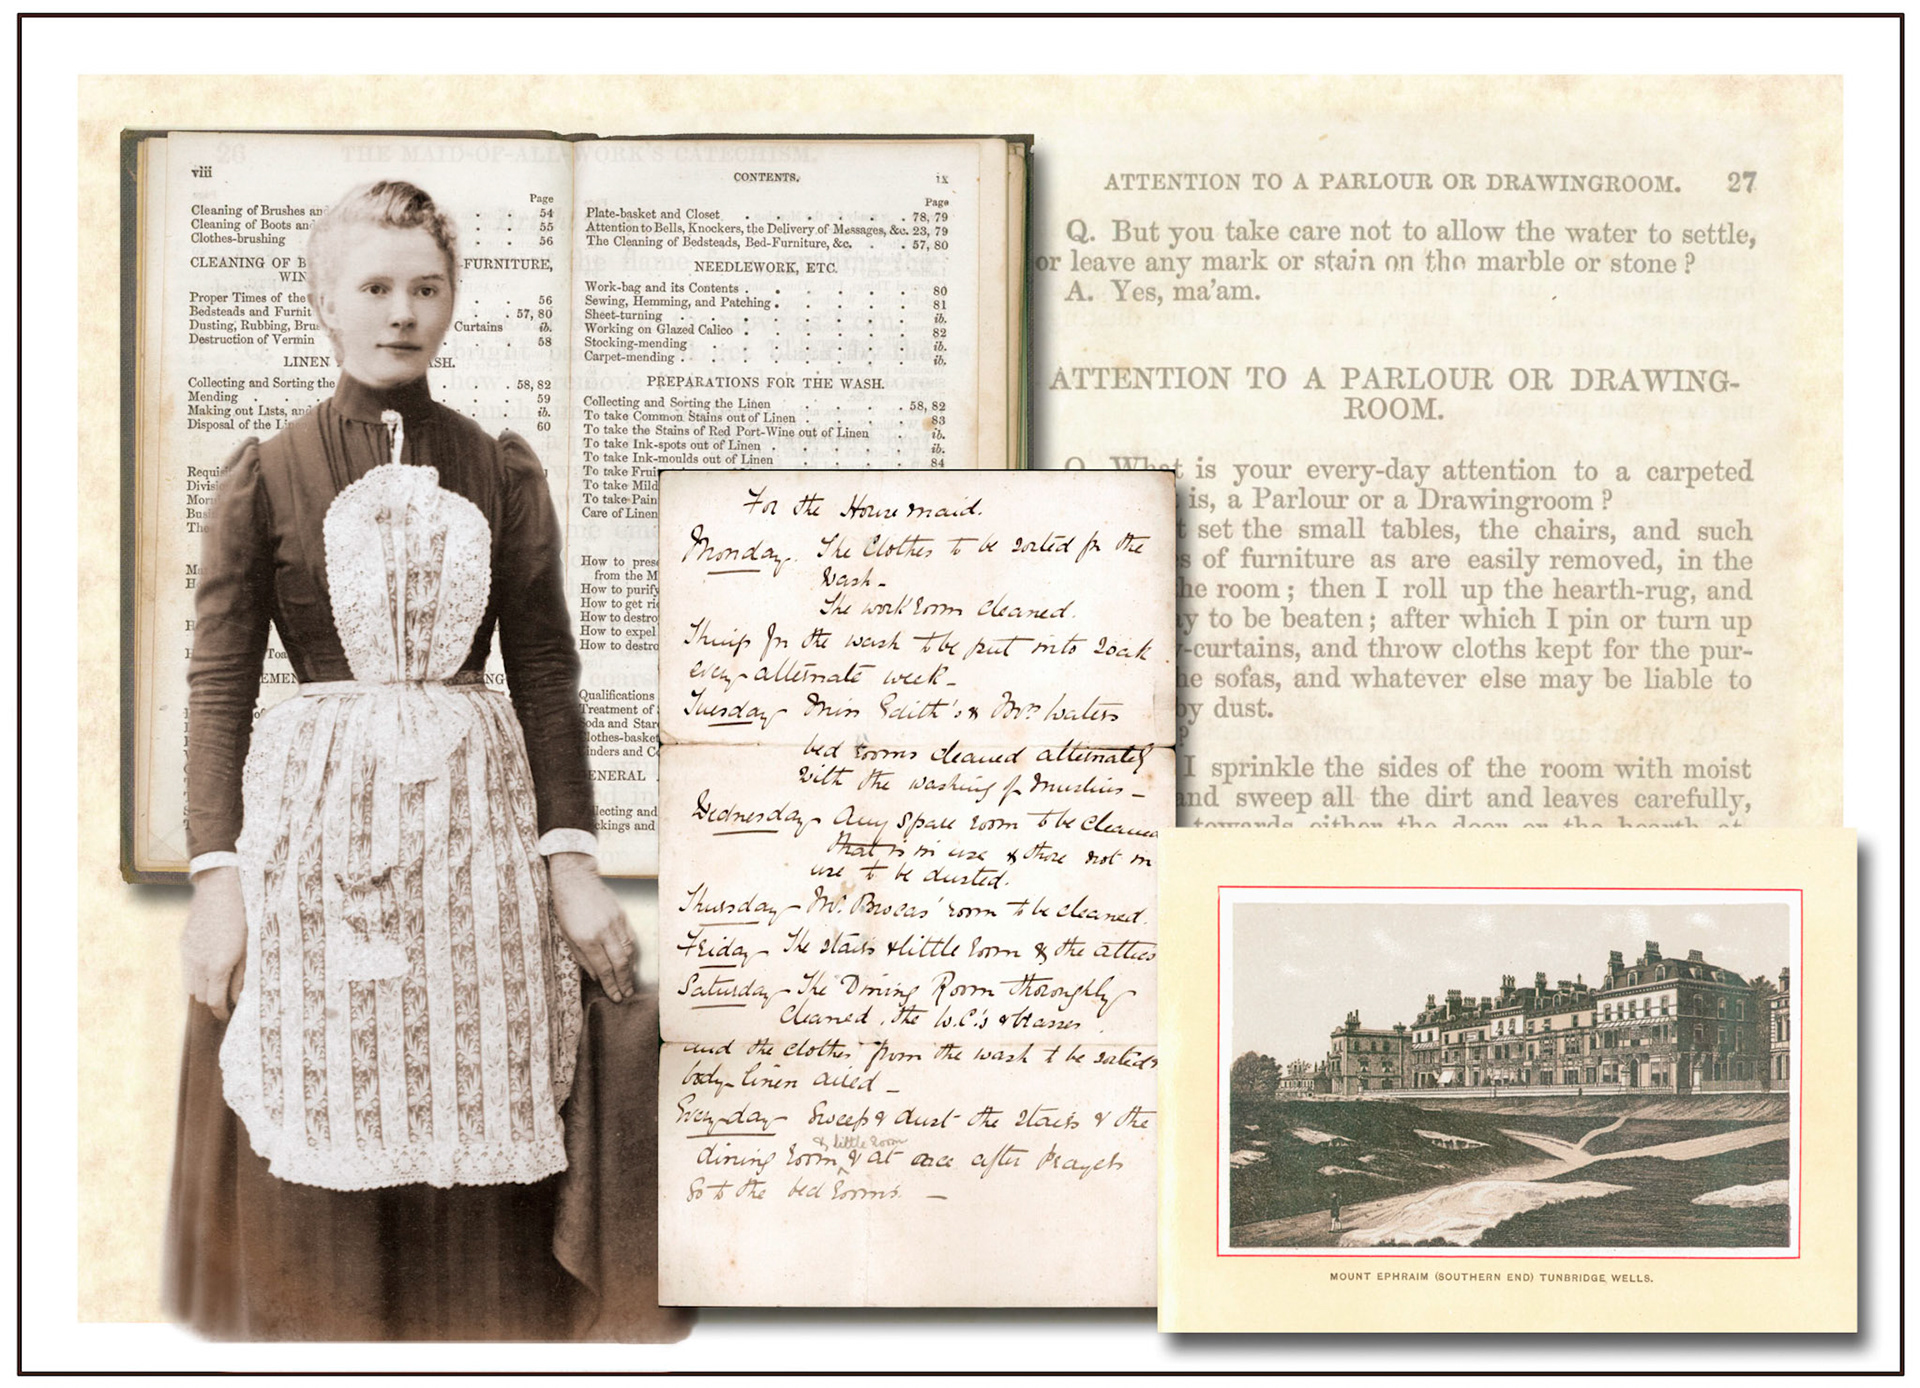 viii
Page
Cleaning of Brushes and . . 54
Cleaning of Boots and . . 55
Clothes-brushing . . 56
CLEANING OF B FURNITURE,
WIN
Proper Times of the . . 56
Bedsteads and Furnit . 57, 80
Dusting, Rubbing, Brus Curtains ib.
Destruction of Vermin . 58
LINEN ASH.
Collecting and Sorting the . 58, 82
Mending . . . 59
Making out Lists, and . ib.
Disposal of the Li . . 60
Requisi
Divisi
Morn
Busi
The
Ma
H
H
Toa
EMEN NG
26 THE MAID-OF-ALL-WORK'S CATECHISM.
CONTENTS. ix
Page
Plate-basket and Closet . . . . . 78, 79
Attention to Bells, Knockers, the Delivery of Messages, &c. 23, 79
The Cleaning of Bedsteads, Bed-Furniture, &c. . . 57, 80
NEEDLEWORK, ETC.
Work-bag and its Contents . . . . . . 80
Sewing, Hemming, and Patching . . . . . 81
Sheet-turning . . . . . . . ib.
Working on Glazed Calico . . . . . . 82
Stocking-mending . . . . . . . ib.
Carpet-mending . . . . . . . ib.
PREPARATIONS FOR THE WASH.
Collecting and Sorting the Linen . . . . 58, 82
To take Common Stains out of Linen . . . . 83
To take the Stains of Red Port-Wine out of Linen . ib.
To take Ink-spots out of Linen . . . . . ib.
To take Ink-moulds out of Linen . . . . 84
To take Frui
To take Mild
To take Pain
Care of Linen
How to prese
from the M
How to purify
How to get ri
How to destro
How to expel
How to destro
Qualifications
Treatment of
Soda and Star
Clothes-basket
Cinders and Co
GENERAL
llecting and
ckings and
For the Housemaid.
Monday. The Clothes to be sorted for the
wash -
The workroom cleaned.
Things for the wash to be put into soak
every alternate week -
Tuesday - Miss Edith's & Mrs Waters
bed rooms cleaned alternately
with the washing of muslins -
Wednesday - Any spare room to be cleaned
that is in use & those not in
use to be dusted.
Thursday - Mr. Brocas' room to be cleaned.
Friday - The stairs & little room & the attics
Saturday - The Dining Room thoroughly
cleaned, the W.C.'s & brasses
and the clothes from the wash to be sorted &
body-linen aired -
Every day - Sweep & dust the stairs & the
& little room
dining room & at once after Prayers
go to the bed rooms. -
ATTENTION TO A PARLOUR OR DRAWINGROOM. 27
Q. But you take care not to allow the water to settle,
or leave any mark or stain on the marble or stone ?
A. Yes, ma'am.
ATTENTION TO A PARLOUR OR DRAWING-
ROOM.
Q. What is your every-day attention to a carpeted
is, a Parlour or a Drawingroom ?
t set the small tables, the chairs, and such
s of furniture as are easily removed, in the
he room ; then I roll up the hearth-rug, and
y to be beaten ; after which I pin or turn up
-curtains, and throw cloths kept for the pur-
he sofas, and whatever else may be liable to
by dust.
?
I sprinkle the sides of the room with moist
and sweep all the dirt and leaves carefully,
towards either the door or the hearth
MOUNT EPHRAIM (SOUTHERN END) TUNBRIDGE WELLS.